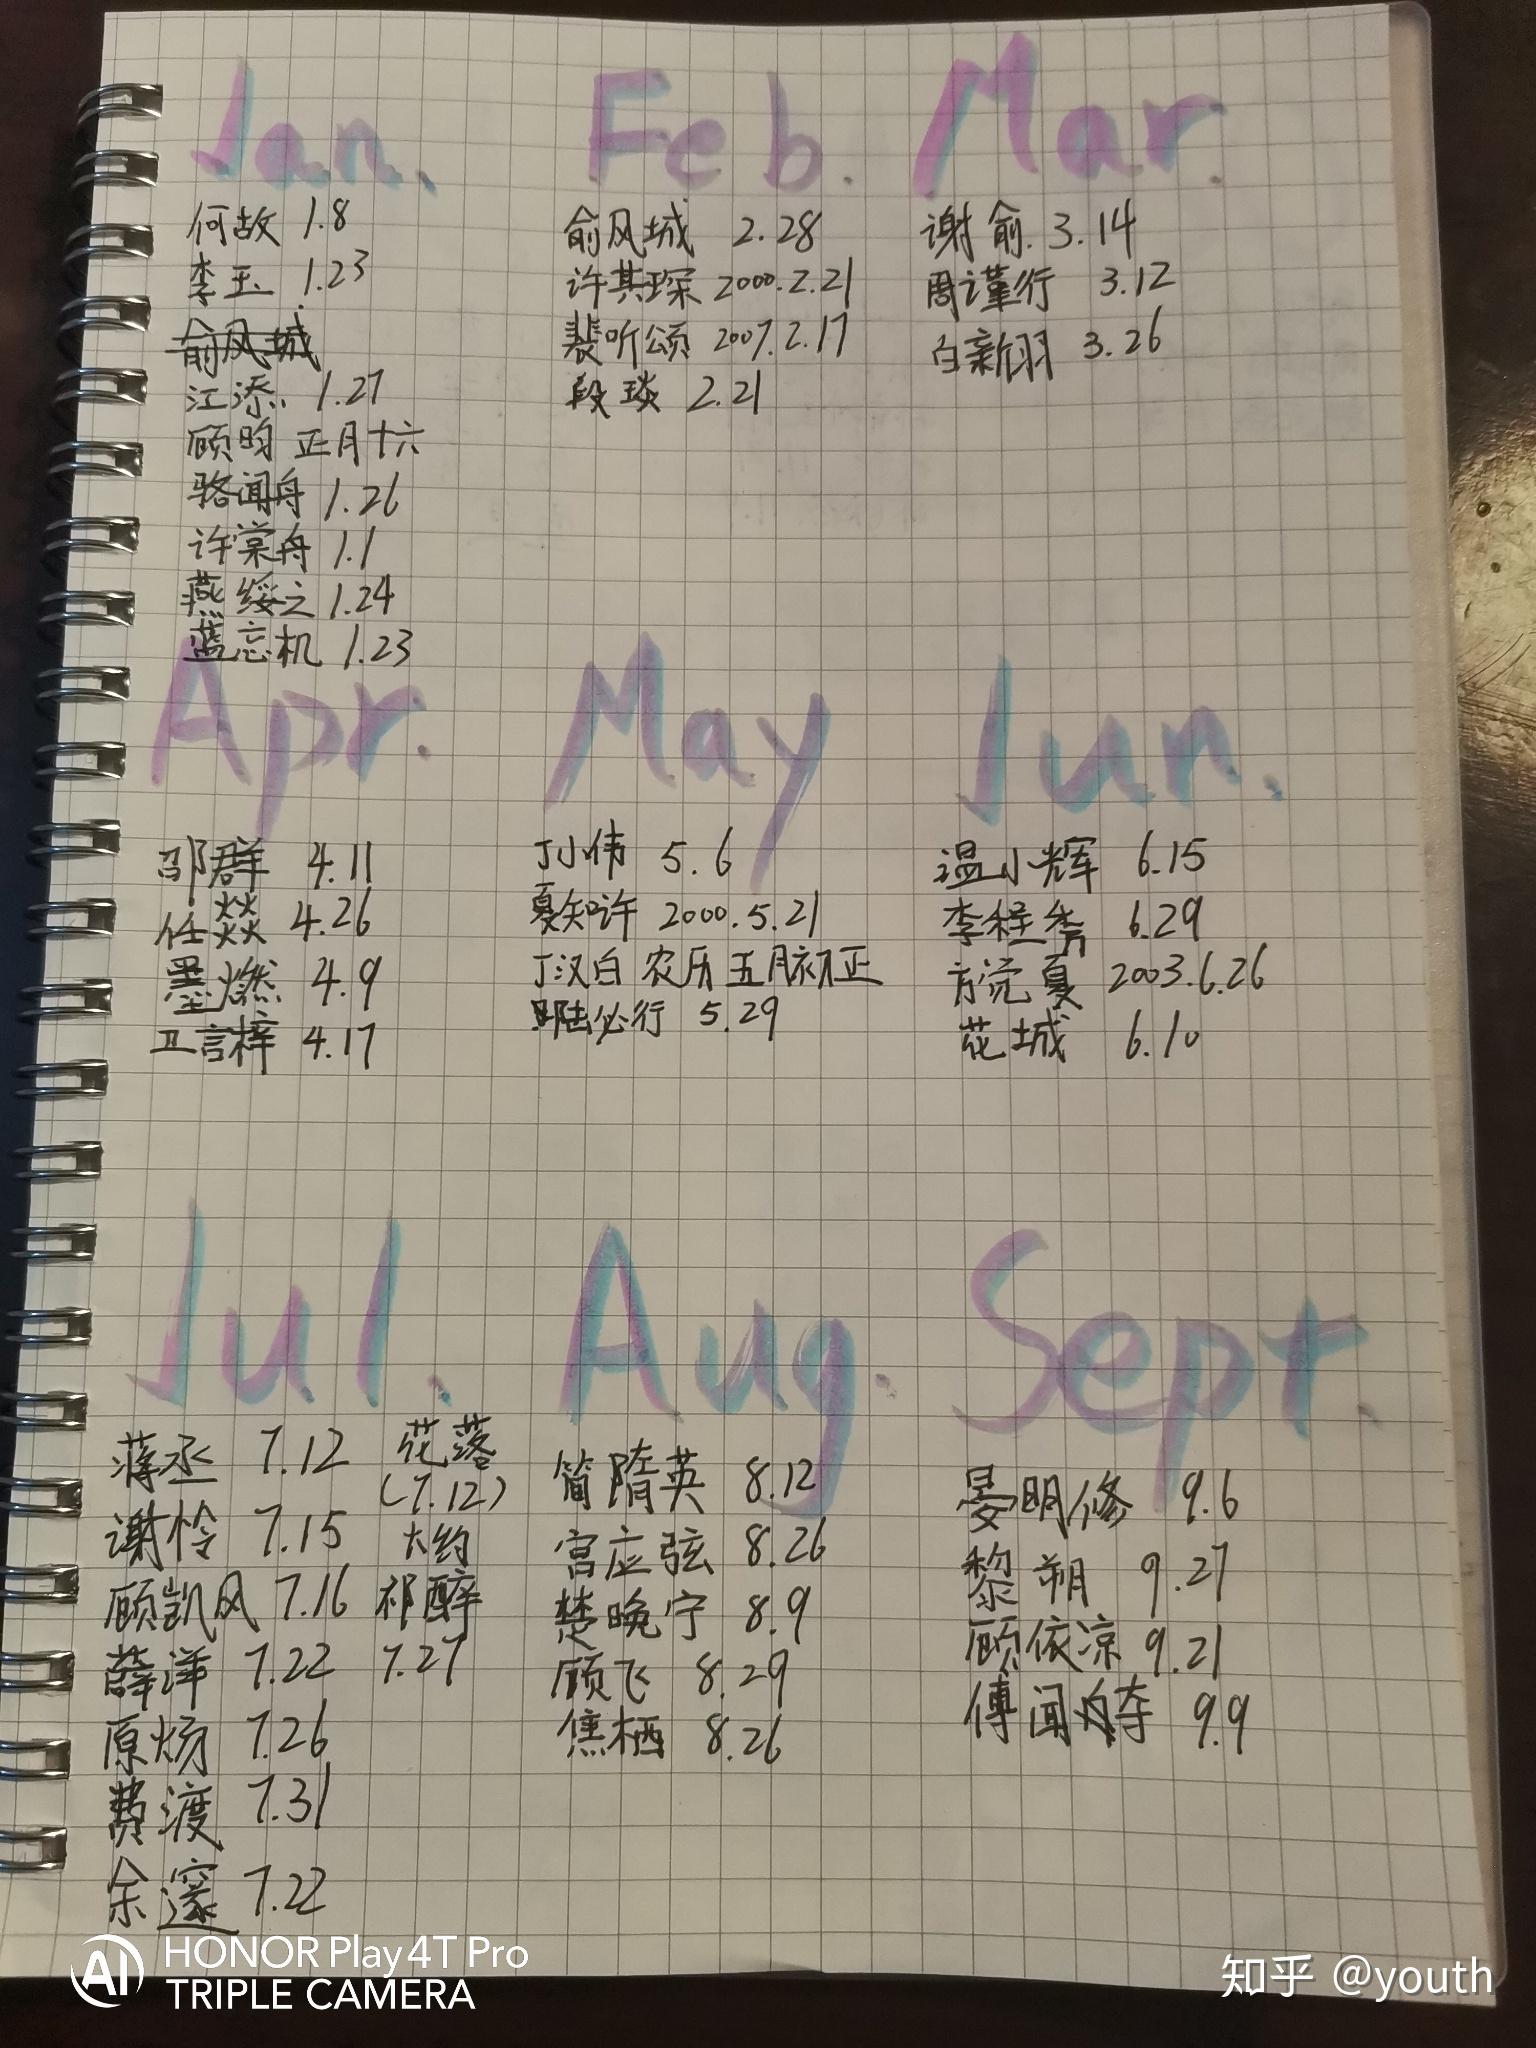 Jan.
何故 1.8
李玉 1.23
俞风城
江添 1.27
顾昀 正月十六
骆闻舟 1.26
许棠舟 1.1
燕绥之 1.24
蓝忘机 1.23
Feb.
俞风城 2.28
许其琛 2000.2.21
裴听颂 2007.2.17
段琰 2.21
Mar.
谢俞 3.14
周谨行 3.12
白新羽 3.26
Apr.
邵群 4.11
任燚 4.26
墨燃 4.9
卫言梓 4.17
May
丁小伟 5.6
夏知许 2000.5.21
丁汉白 农历五月初五
陆必行 5.29
Jun.
温小辉 6.15
李程秀 6.29
方觉夏 2003.6.26
花城 6.10
Jul.
蒋丞 7.12
谢怜 7.15
顾凯风 7.16
薛洋 7.22
原炀 7.26
费渡 7.31
余邃 7.22
花落
(7.12)
大约
祁醉
7.27
Aug.
简隋英 8.12
宫应弦 8.26
楚晚宁 8.9
顾飞 8.29
焦栖 8.26
Sept.
晏明修 9.6
黎朔 9.27
顾依凉 9.21
傅闻夺 9.9
AI HONOR Play4T Pro
TRIPLE CAMERA
知乎 @youth